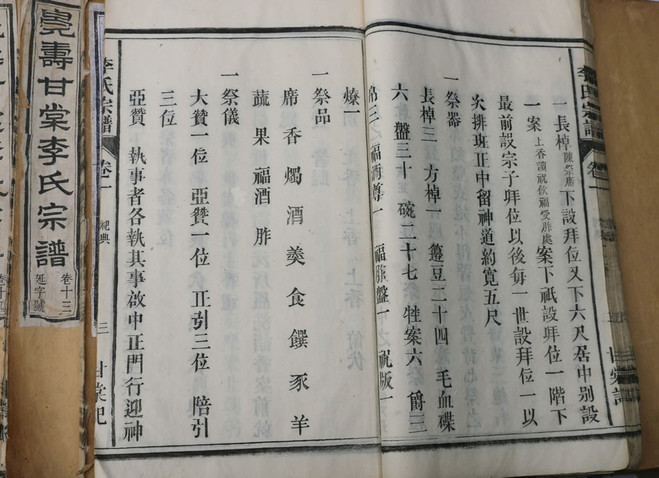 李氏宗譜 卷一
一長棹陳祭席下設拜位又下六尺居中别設
一案上香讀祝飲福受胙處案下祗設拜位一階下
最前設宗子拜位以後每一世設拜位一以
次排班正中留神道約寛五尺
一祭器
長棹三 方棹一 籩豆二十四 毛血碟
六 盤三十 碗二十七 牲案六 爵三
帛三 福酒尊一 福胙盤一 祝版一
燎一
一祭品
席香燭酒羮食饌豕羊
蔬果福酒胙
一祭儀
大贊一位 亞贊一位 正引三位 陪引
三位
亞贊 執事者各執其事啟中正門行迎神
李氏宗譜 卷一 祀典 三 甘棠記
壽甘棠李氏宗譜 卷十三
延字號